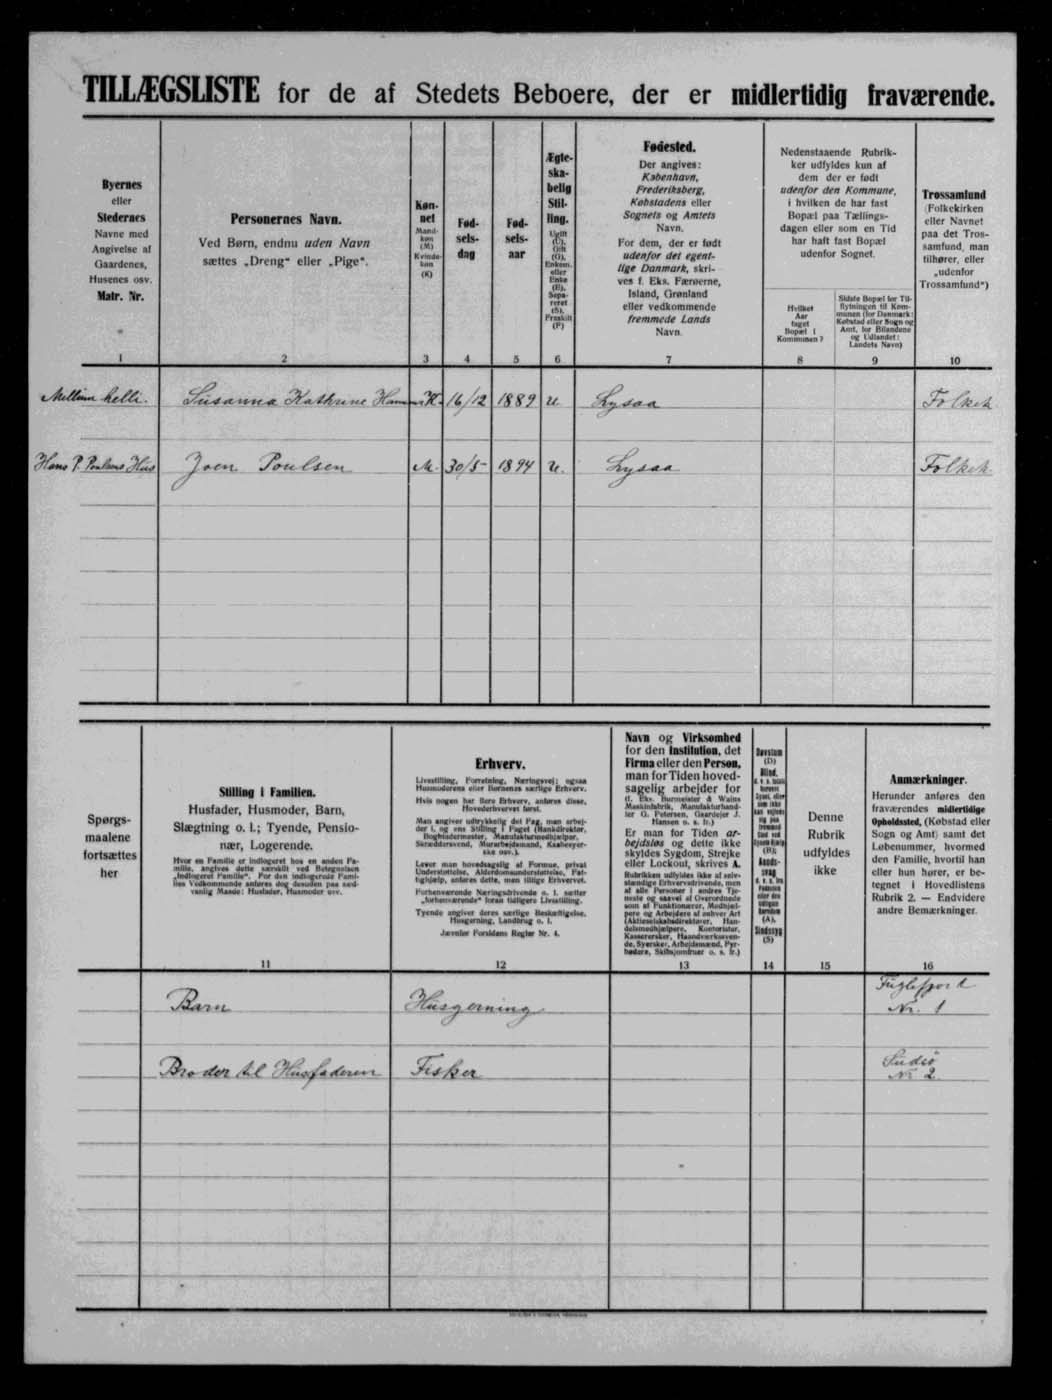 TILLÆGSLISTE for de af Stedets Beboere, der er midlertidig fraværende.
Byernes
eller
Stedernes
Navne med
Angivelse af
Gaardenes,
Husenes osv.
Matr. Nr.
1
Personernes Navn.
Ved Børn, endnu uden Navn
sættes „Dreng“ eller „Pige“.
2
Køn-
net
Mand-
køn
(M)
Kvinde-
køn
(K)
3
Fød-
sels-
dag
4
Fød-
sels-
aar
5
Ægte-
ska-
belig
Stil-
ling.
Ugift
(U),
Gift
(G),
Enkem.
eller
Enke
(E),
Sepa-
reret
(S),
Fraskilt
(F)
6
Fødested.
Der angives:
København,
Frederiksberg,
Købstadens eller
Sognets og Amtets
Navn.
For dem, der er født
udenfor det egent-
lige Danmark, skri-
ves f. Eks. Færøerne,
Island, Grønland
eller vedkommende
fremmede Lands
Navn.
7
Nedenstaaende Rubrik-
ker udfyldes kun af
dem der er født
udenfor den Kommune,
i hvilken de har fast
Bopæl paa Tællings-
dagen eller som en Tid
har haft fast Bopæl
udenfor Sognet.
Hvilket
Aar
taget
Bopæl i
Kommunen?
8
Sidste Bopæl før Til-
flytningen til Kom-
munen (for Danmark:
Købstad eller Sogn og
Amt, for Bilandene
og Udlandet:
Landets Navn)
9
Trossamfund
(Folkekirken
eller Navnet
paa det Tros-
samfund, man
tilhører, eller
„udenfor
Trossamfund“)
10
Mellem helli. Susanna Kathrine K 16/12 1889 U. Lysaa Folkek.
Hans P. Poulsens Hus Joen Poulsen M. 30/5 1894 U. Lysaa Folkek.
Spørgs-
maalene
fortsættes
her
Stilling i Familien.
Husfader, Husmoder, Barn,
Slægtning o. l.; Tyende, Pensio-
nær, Logerende.
Hvor en Familie er indlogeret hos en anden Fa-
milie, angives dette særskilt ved Betegnelsen
„indlogeret Familie“. For den indlogerede Fami-
lies Vedkommende anføres dog desuden paa sæd-
vanlig Maade: Husfader, Husmoder osv.
11
Erhverv.
Livsstilling, Forretning, Næringsvej; ogsaa
Husmoderens eller Børnenes særlige Erhverv.
Hvis nogen har flere Erhverv, anføres disse,
Hovederhvervet først.
Man angiver udtrykkelig det Fag, man arbej-
der i, og ens Stilling i Faget (Bankdirektør,
Bogbindermester, Manufakturmedhjælper,
Skræddersvend, Murarbejdsmand, Kasbesyer-
ske osv.).
Lever man hovedsagelig af Formue, privat
Understøttelse, Alderdomsunderstøttelse, Fat-
tighjælp, anføres dette, men tillige Erhvervet.
Forhenværende Næringsdrivende o. l. sætter
„forhenværende“ foran tidligere Livsstilling.
Tyende angiver deres særlige Beskæftigelse,
Husgerning, Landbrug o. l.
Jævnfør Forsidens Regler Nr. 4.
12
Navn og Virksomhed
for den Institution, det
Firma eller den Person,
man for Tiden hoved-
sagelig arbejder for
(f. Eks. Burmeister & Wains
Maskinfabrik, Manufakturhand-
ler G. Petersen, Gaardejer J.
Hansen o. s. fr.)
Er man for Tiden ar-
bejdsløs og dette ikke
skyldes Sygdom, Strejke
eller Lockout, skrives A.
Rubrikken udfyldes ikke af selv-
stændige Erhvervsdrivende, men
af alle Personer i andres Tje-
neste og saavel af Overordnede
som af Funktionærer, Medhjæl-
pere og Arbejdere af enhver Art
(Aktieselskabsdirektører, Han-
delsmedhjælpere, Kontorister,
Kasserersker, Haandværkssven-
de, Syersker, Arbejdsmænd, Fyr-
bødere, Skibsjomfruer o. s. fr.)
13
Døvstum
(D)
Blind,
(B);
Aands-
svag
(A),
Sindssyg
(S)
14
Denne
Rubrik
udfyldes
ikke
15
Anmærkninger.
Herunder anføres den
fraværendes midlertidige
Opholdssted, (Købstad eller
Sogn og Amt) samt det
Løbenummer, hvormed
den Familie, hvortil han
eller hun hører, er be-
tegnet i Hovedlistens
Rubrik 2. — Endvidere
andre Bemærkninger.
16
Barn Husgerning Fuglefjord
Nr. 1
Broder til Husfaderen Fisker Sudrø
Nr 2